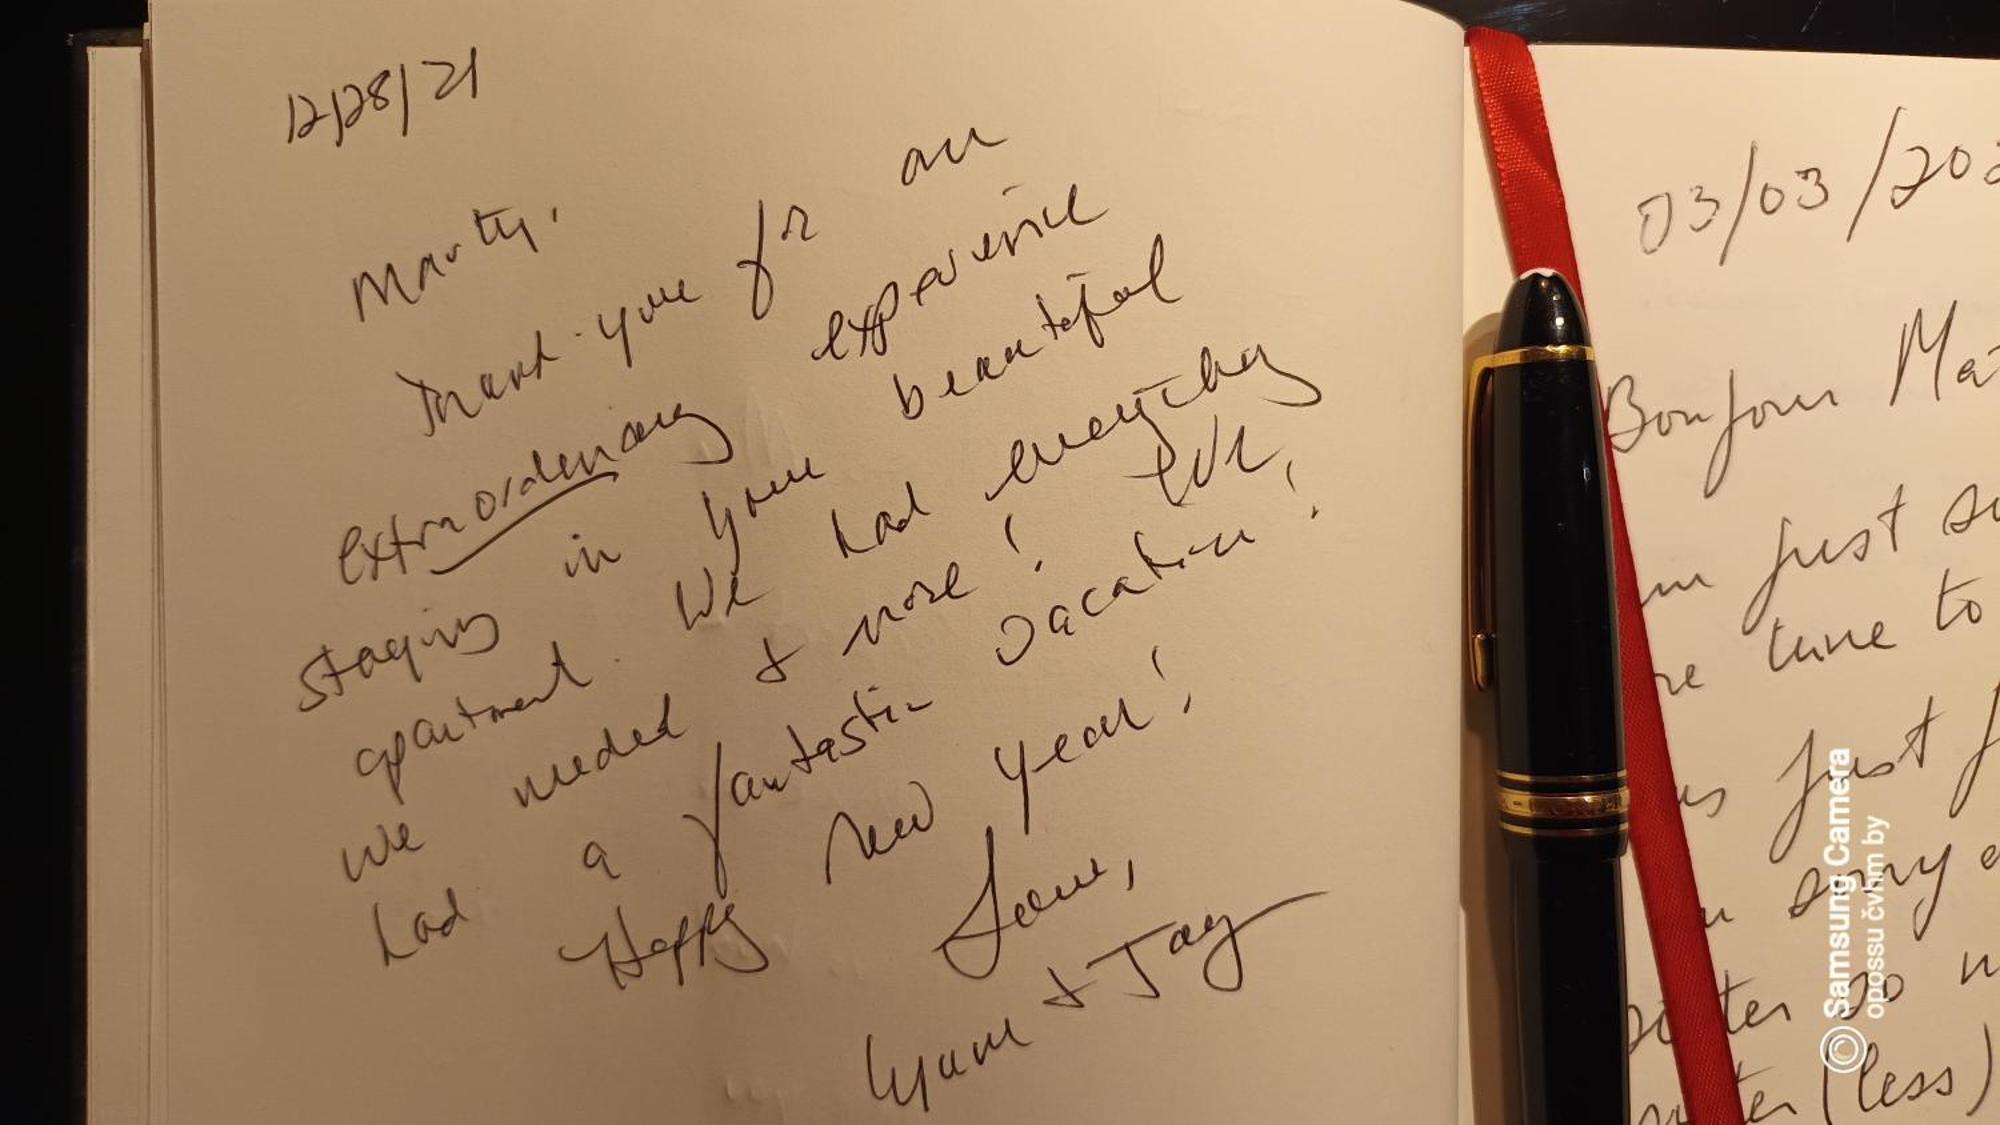 12/28/21
Marty,
Thank-you for an
extraordinary experience
staying in your beautiful
apartment. We had everything
we needed & more! We
had a fantastic vacation!
Happy New Year!
Love,
& Jay
03/03/202
Bonjour Mat
just su
time to
just f
sorry
so n
(less)
Samsung Camera
opossu čvhm by